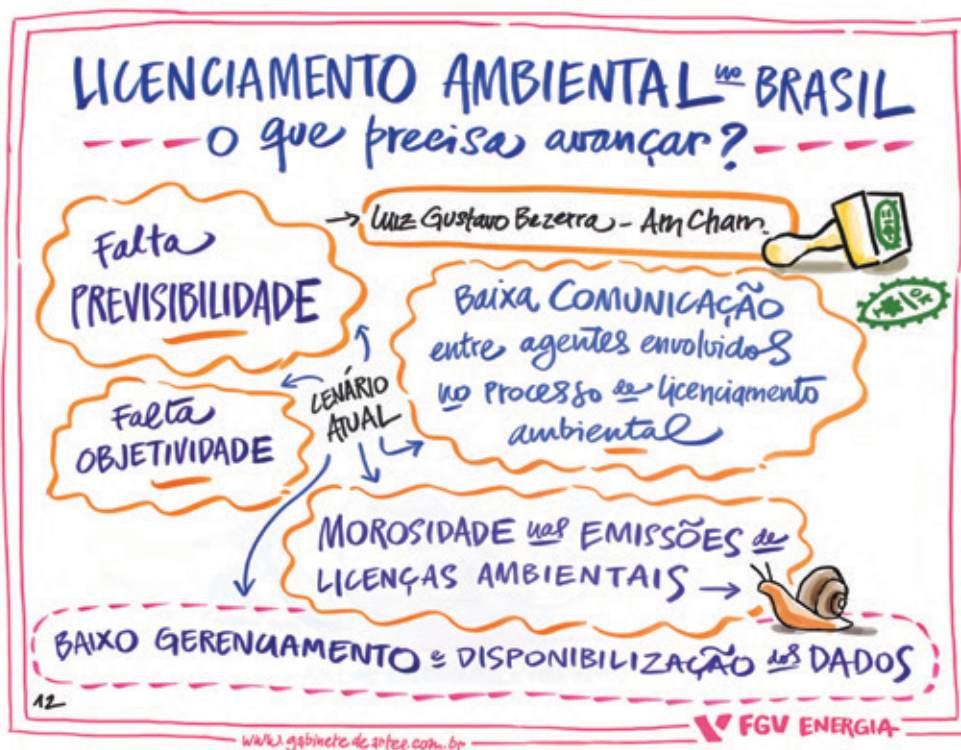 LICENCIAMENTO AMBIENTAL no BRASIL
O que precisa avançar?
Luiz Gustavo Bezerra - AmCham.
Falta
PREVISIBILIDADE
Baixa COMUNICAÇÃO
entre agentes envolvidos
no processo de licenciamento
ambiental
CENÁRIO
ATUAL
Falta
OBJETIVIDADE
MOROSIDADE nas EMISSÕES de
LICENÇAS AMBIENTAIS
BAIXO GERENCIAMENTO e DISPONIBILIZAÇÃO dos DADOS
12
www.gabinetedeartee.com.br
FGV ENERGIA